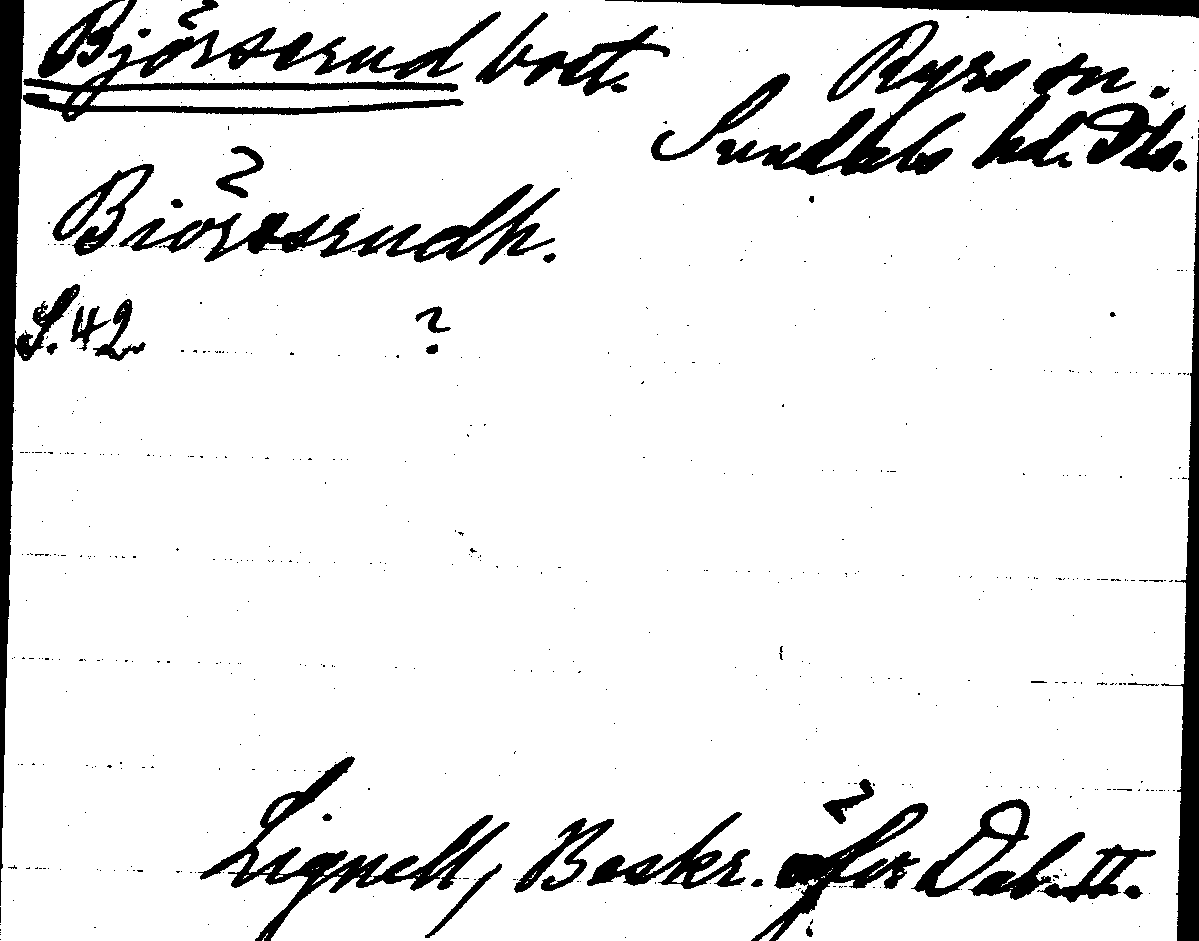 Björserud bost. Ryrs sn.
Sundals hd. Dls.
Biörsrudh.
S. 42. ?
Lignell, Beskr. öfver Dal. II.